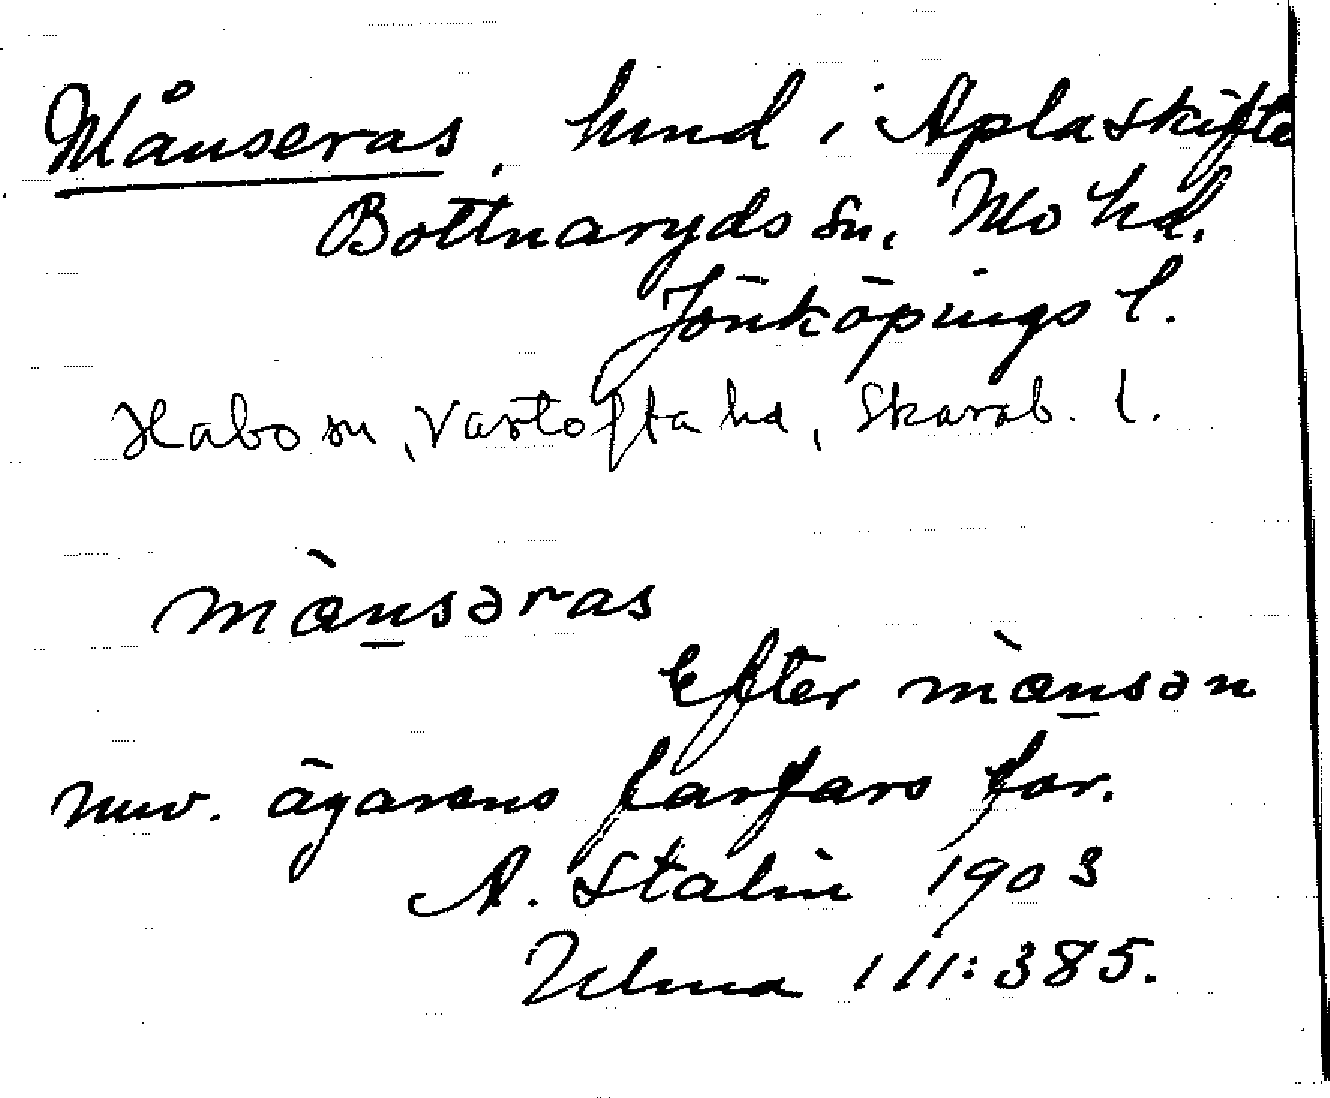 Månseras, hmd i Aplaskifte
Bottnaryds sn, Mo hd.
Jönköpings l.
Habo sn, Vartofta hd, Skarab. l.
mànsəras
Efter mànsən
nuv. ägarens farfars far.
A. Stalin 1903
Ulma 111:385.